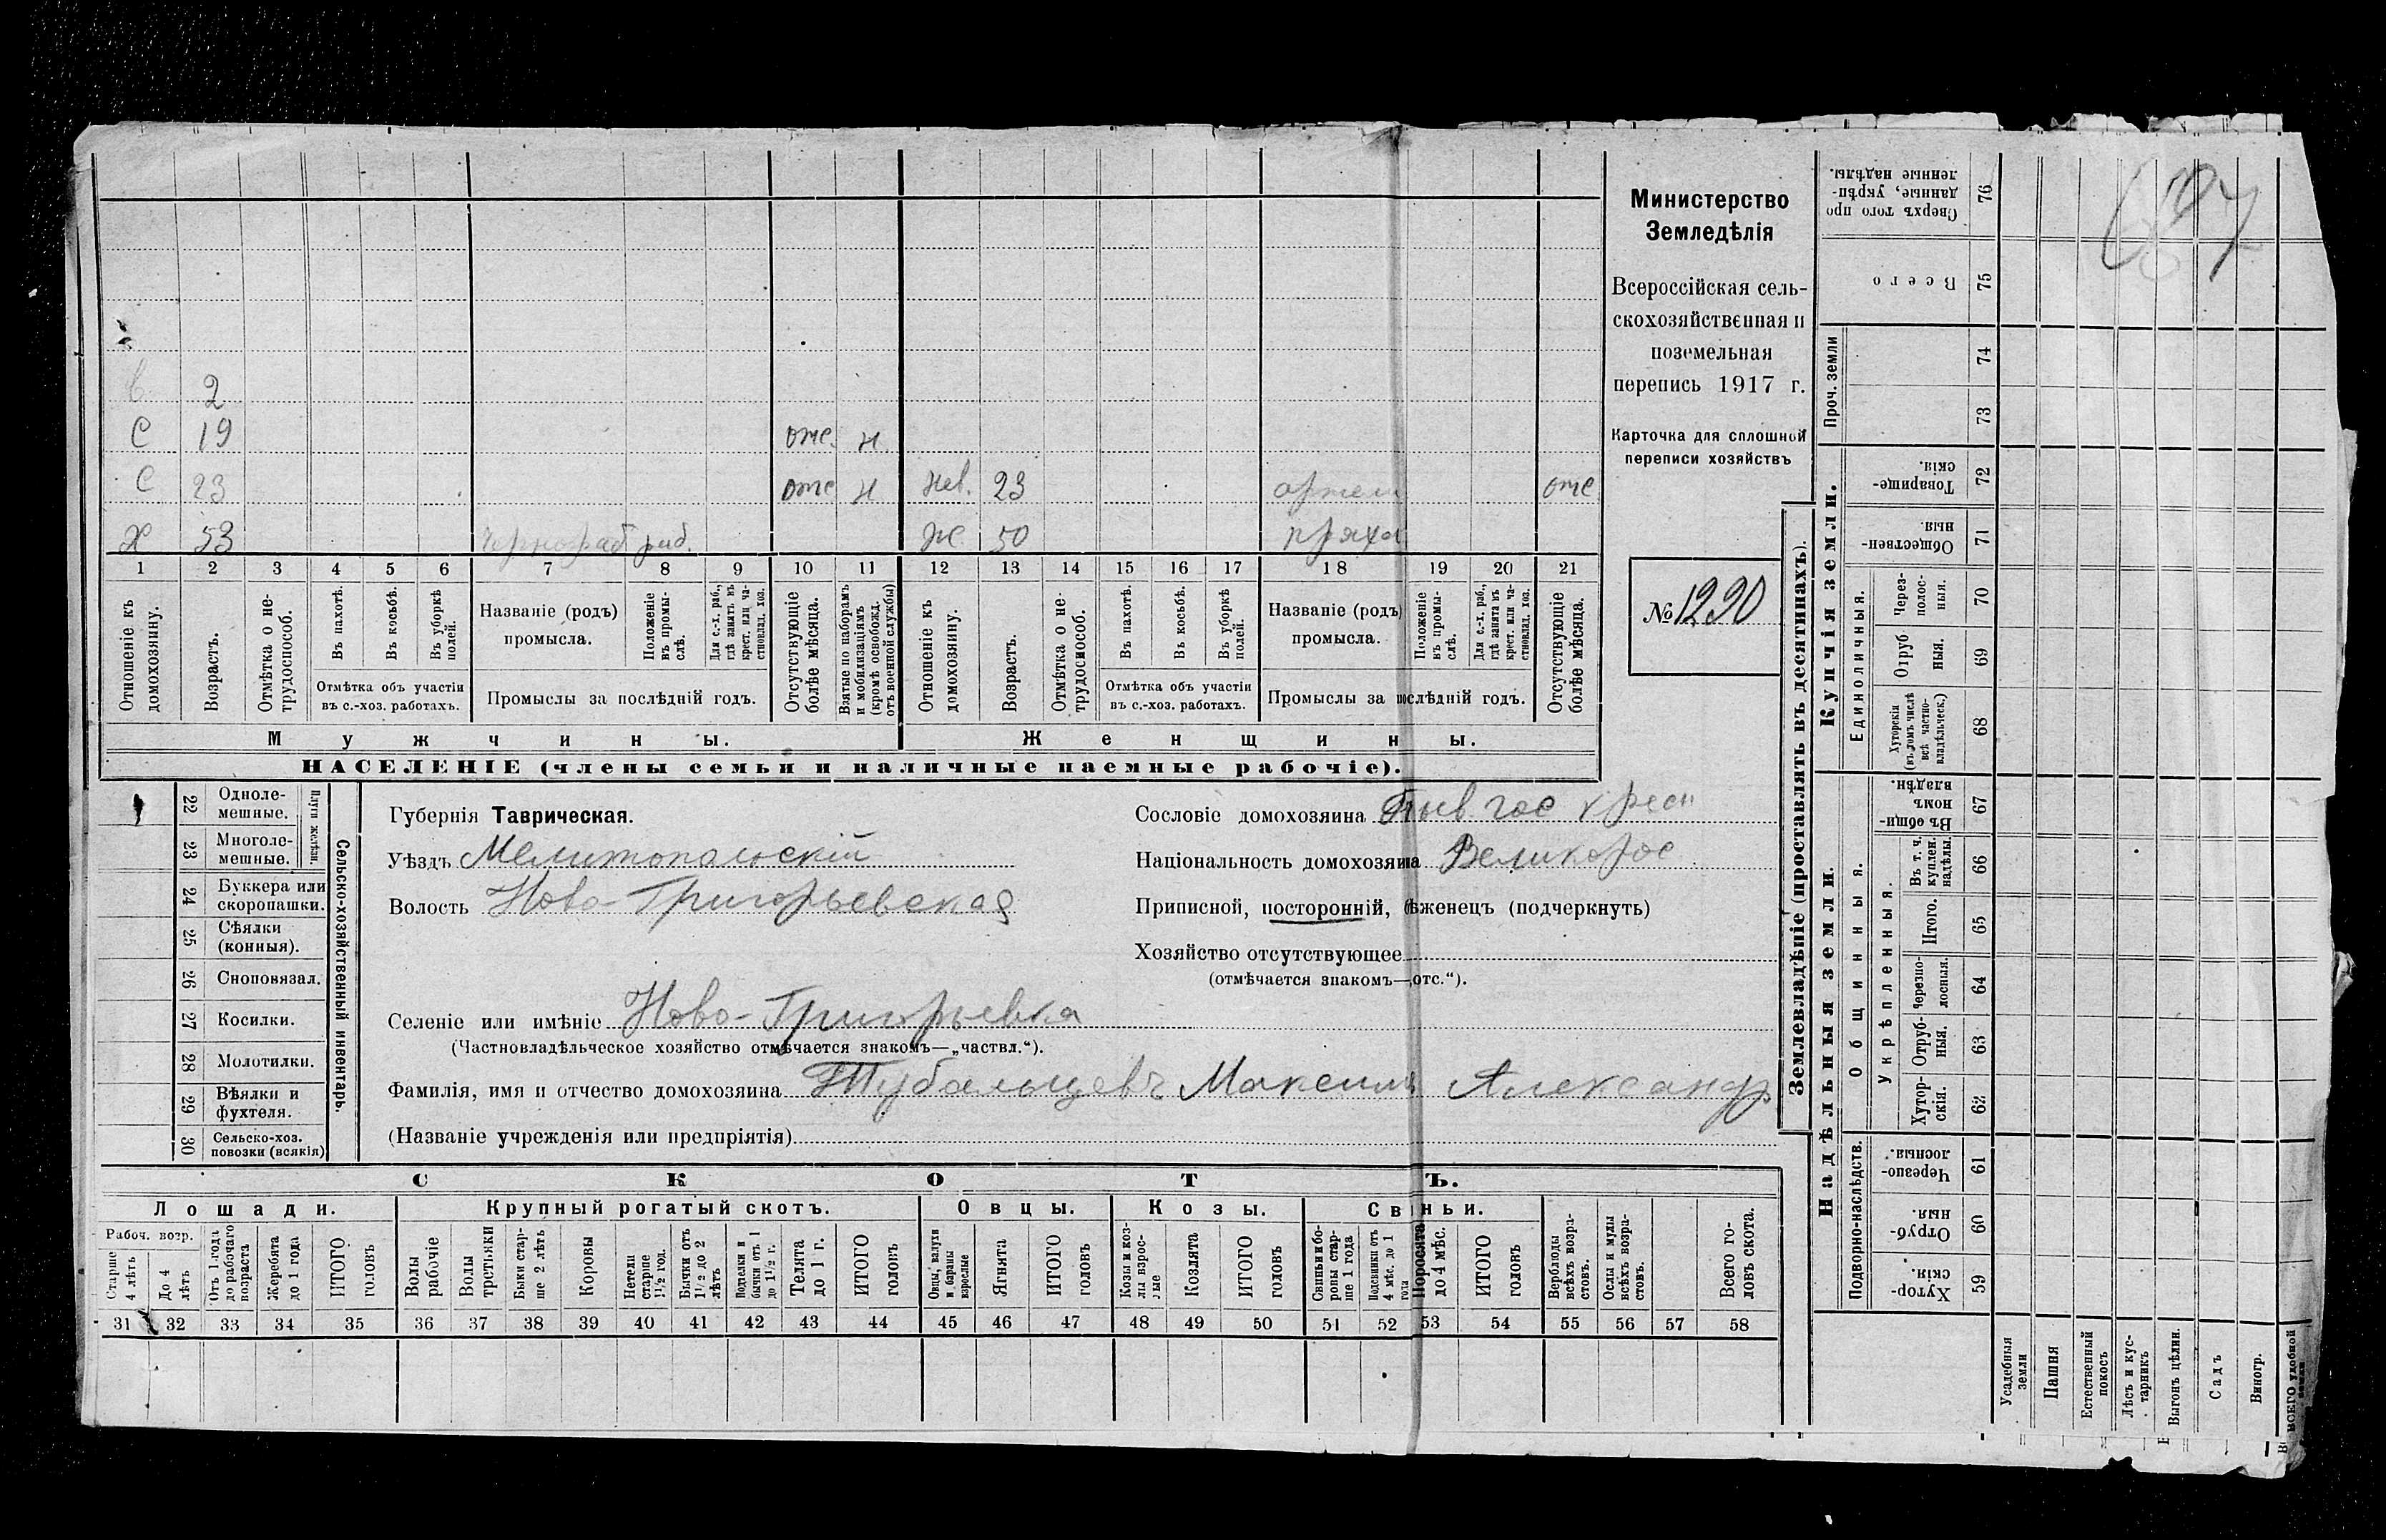 Министерство
Земледѣлія
Всероссійская сель-
скохозяйственная и
поземельная
перепись 1917 г.
Карточка для сплошной
переписи хозяйствъ
№ 1290
2
С 19 отс. н.
С 23 отс н нев. 23 отс
Х 53 чернораб раб. ж. 50 пряха
1 2 3 4 5 6 7 8 9 10 11 12 13 14 15 16 17 18 19 20 21
Отношеніе къ домохозяину.
Возрастъ.
Отмѣтка о не-трудоспособ.
Въ пахотѣ.
Въ косьбѣ.
Въ уборкѣ полей.
Отмѣтка объ участіи
въ с.-хоз. работахъ.
Названіе (родъ)
промысла.
Положеніе въ промы-слѣ.
Для с.-х. раб., гдѣ занятъ въ крест. или ча-стновлад. хоз.
Промыслы за послѣдній годъ.
Отсутствующіе болѣе мѣсяца.
Взятые по наборамъ и мобилизаціямъ (кромѣ освобожд. отъ военной службы)
Отношеніе къ домохозяину.
Возрастъ.
Отмѣтка о не-трудоспособ.
Въ пахотѣ.
Въ косьбѣ.
Въ уборкѣ полей.
Отмѣтка объ участіи
въ с.-хоз. работахъ.
Названіе (родъ)
промысла.
Положеніе въ промы-слѣ.
Для с.-х. раб., гдѣ занята въ крест. или ча-стновлад. хоз.
Промыслы за послѣдній годъ.
Отсутствующіе болѣе мѣсяца.
Мужчины.
Женщины.
НАСЕЛЕНІЕ (члены семьи и наличные наемные рабочіе).
Сельско-хозяйственный инвентарь.
Плуги желѣзн.
22 Одноле-мешные.
23 Многоле-мешные.
24 Буккера или скоропашки.
25 Сѣялки (конныя).
26 Сноповязал.
27 Косилки.
28 Молотилки.
29 Вѣялки и фухтеля.
30 Сельско-хоз. повозки (всякія)
Губернія Таврическая.
Уѣздъ Мелитопольскій
Волость Ново-Григорьевская
Сословіе домохозяина Быв гос крест
Національность домохозяина Великорос
Приписной, посторонній, бѣженецъ (подчеркнуть)
Хозяйство отсутствующее
(отмѣчается знакомъ—„отс.“).
Селеніе или имѣніе Ново-Григорьевка
(Частновладѣльческое хозяйство отмѣчается знакомъ—„частвл.“).
Фамилія, имя и отчество домохозяина Тубальцевъ Максимъ Александр
(Названіе учрежденія или предпріятія)
СКОТЪ.
Лошади.
Крупный рогатый скотъ.
Овцы.
Козы.
Свиньи.
Рабоч. возр.
Старше 4 лѣтъ
До 4 лѣтъ
Отъ 1 года до рабочаго возраста
Жеребята до 1 года
ИТОГО головъ
Волы рабочіе
Волы третьяки
Быки стар-ше 2 лѣтъ
Коровы
Нетели старше 1½ год.
Бычки отъ 1½ до 2 лѣтъ
Подтелки и бычки отъ 1 до 1½ г.
Телята до 1 г.
ИТОГО головъ
Овцы, валухи и бараны взрослые
Ягнята
ИТОГО головъ
Козы и коз-лы взрос-лые
Козлята
ИТОГО головъ
Свиньи и бо-ровы стар-ше 1 года
Подсвинки отъ 4 мѣс. до 1 года
Поросята до 4 мѣс.
ИТОГО головъ
Верблюды всѣхъ возра-стовъ.
Ослы и мулы всѣхъ возра-стовъ.
Всего го-ловъ скота.
31 32 33 34 35 36 37 38 39 40 41 42 43 44 45 46 47 48 49 50 51 52 53 54 55 56 57 58
Землевладѣніе (проставлять въ десятинахъ).
Купчія земли.
Проч. земли
Сверхъ того про данные, укрѣп-ленные надѣлы. 76
Всего 75
74
73
Товарище-скія. 72
Обществен-ныя. 71
Единоличныя.
Через-полос-ныя. 70
Отруб ныя. 69
Хуторскія (въ томъ числѣ всѣ частно-владѣльческ.) 68
Надѣльныя земли.
Общинныя.
Въ общи-номъ владѣн. 67
Укрѣпленныя.
Въ т. ч. куплен. надѣлы. 66
Итого. 65
Черезпо-лосныя. 64
Отруб-ныя. 63
Хутор-скія. 62
Подворно-наслѣдств.
Черезпо-лосныя. 61
Отруб-ныя. 60
Хутор-скія. 59
Усадебныя земли
Пашня
Естественный покосъ
Лѣсъ и кус-тарникъ
Выгонъ цѣлин.
Садъ
Виногр.
ВСЕГО удобной